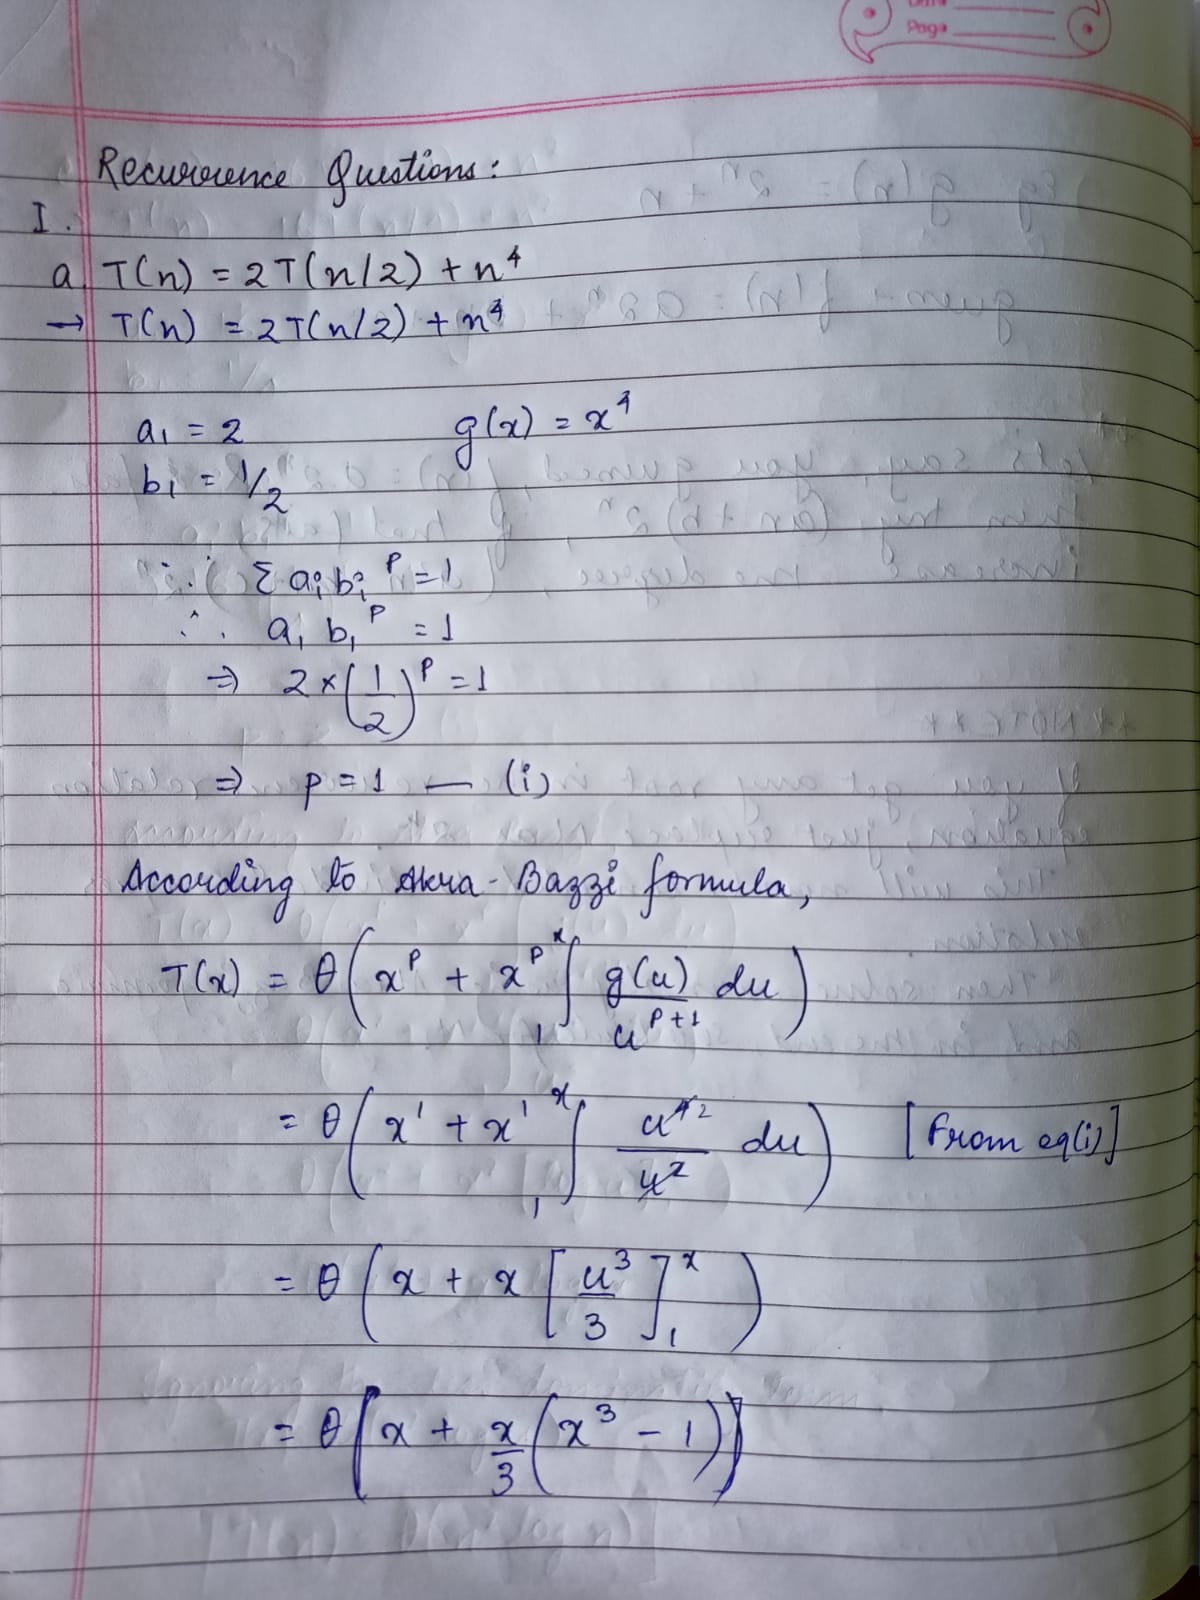 Page
Recurrence Questions:
I.
a. T(n) = 2T(n/2) + n⁴
→ T(n) = 2T(n/2) + n⁴
a₁ = 2 g(x) = x⁴
b₁ = 1/2
∵ Σ aᵢbᵢᵖ = 1
∴ a₁ b₁ᵖ = 1
⇒ 2 × (1/2)ᵖ = 1
⇒ p = 1 — (i)
According to Akra-Bazzi formula,
T(x) = θ(xᵖ + xᵖ ₁∫ˣ g(u)/uᵖ⁺¹ du)
= θ(x¹ + x¹ ₁∫ˣ u⁴ ²/u² du) [From eq(i)]
= θ(x + x [u³/3]₁ˣ)
= θ[x + x/3 (x³ - 1)]